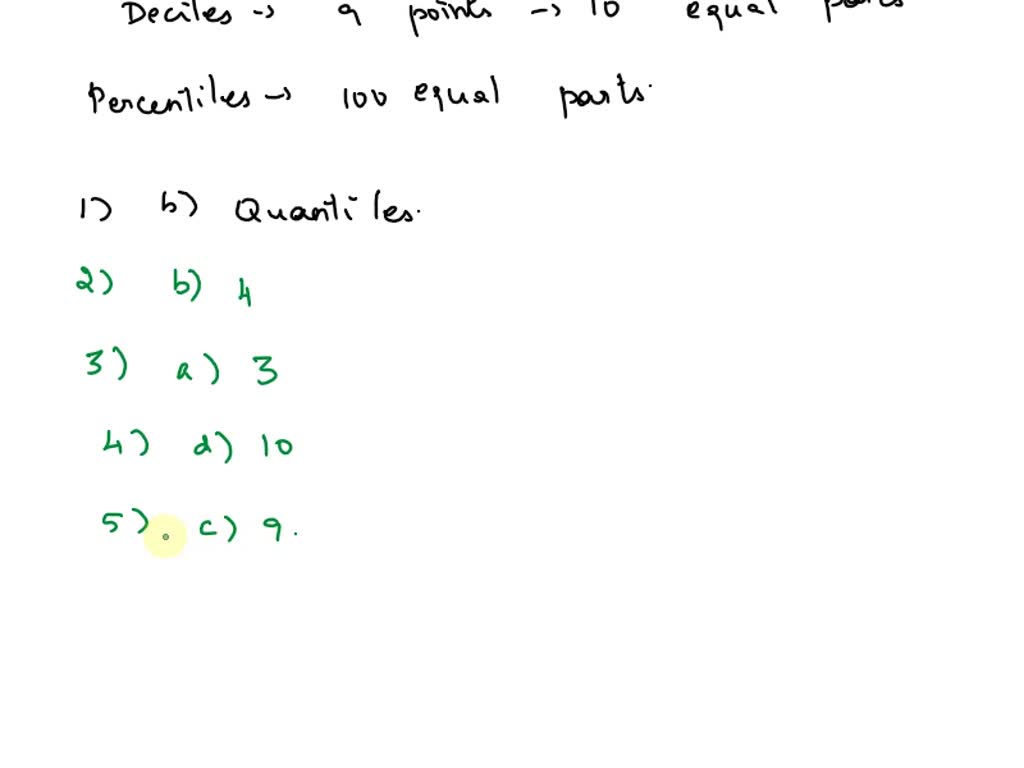 Deciles → 9 points → 10 equal parts
Percentiles → 100 equal parts.
1) b) Quantiles.
2) b) 4
3) a) 3
4) d) 10
5). c) 9.